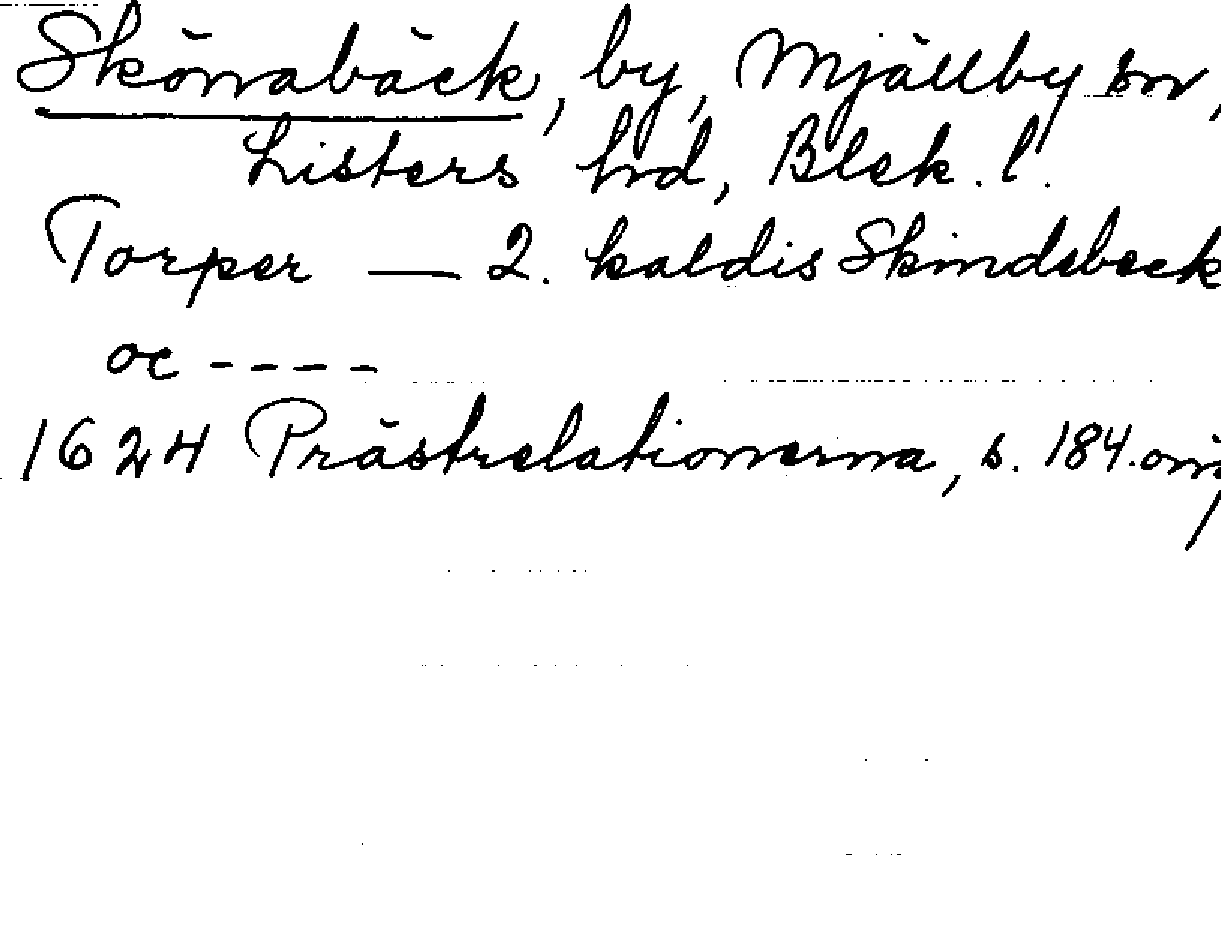 Skönnabäck, by, Mjällby sn,
Listers hrd, Blek. l.
Torper — 2. kaldis Skindebeck
oc - - - -
1624 Prästrelationerna, s. 184. orig